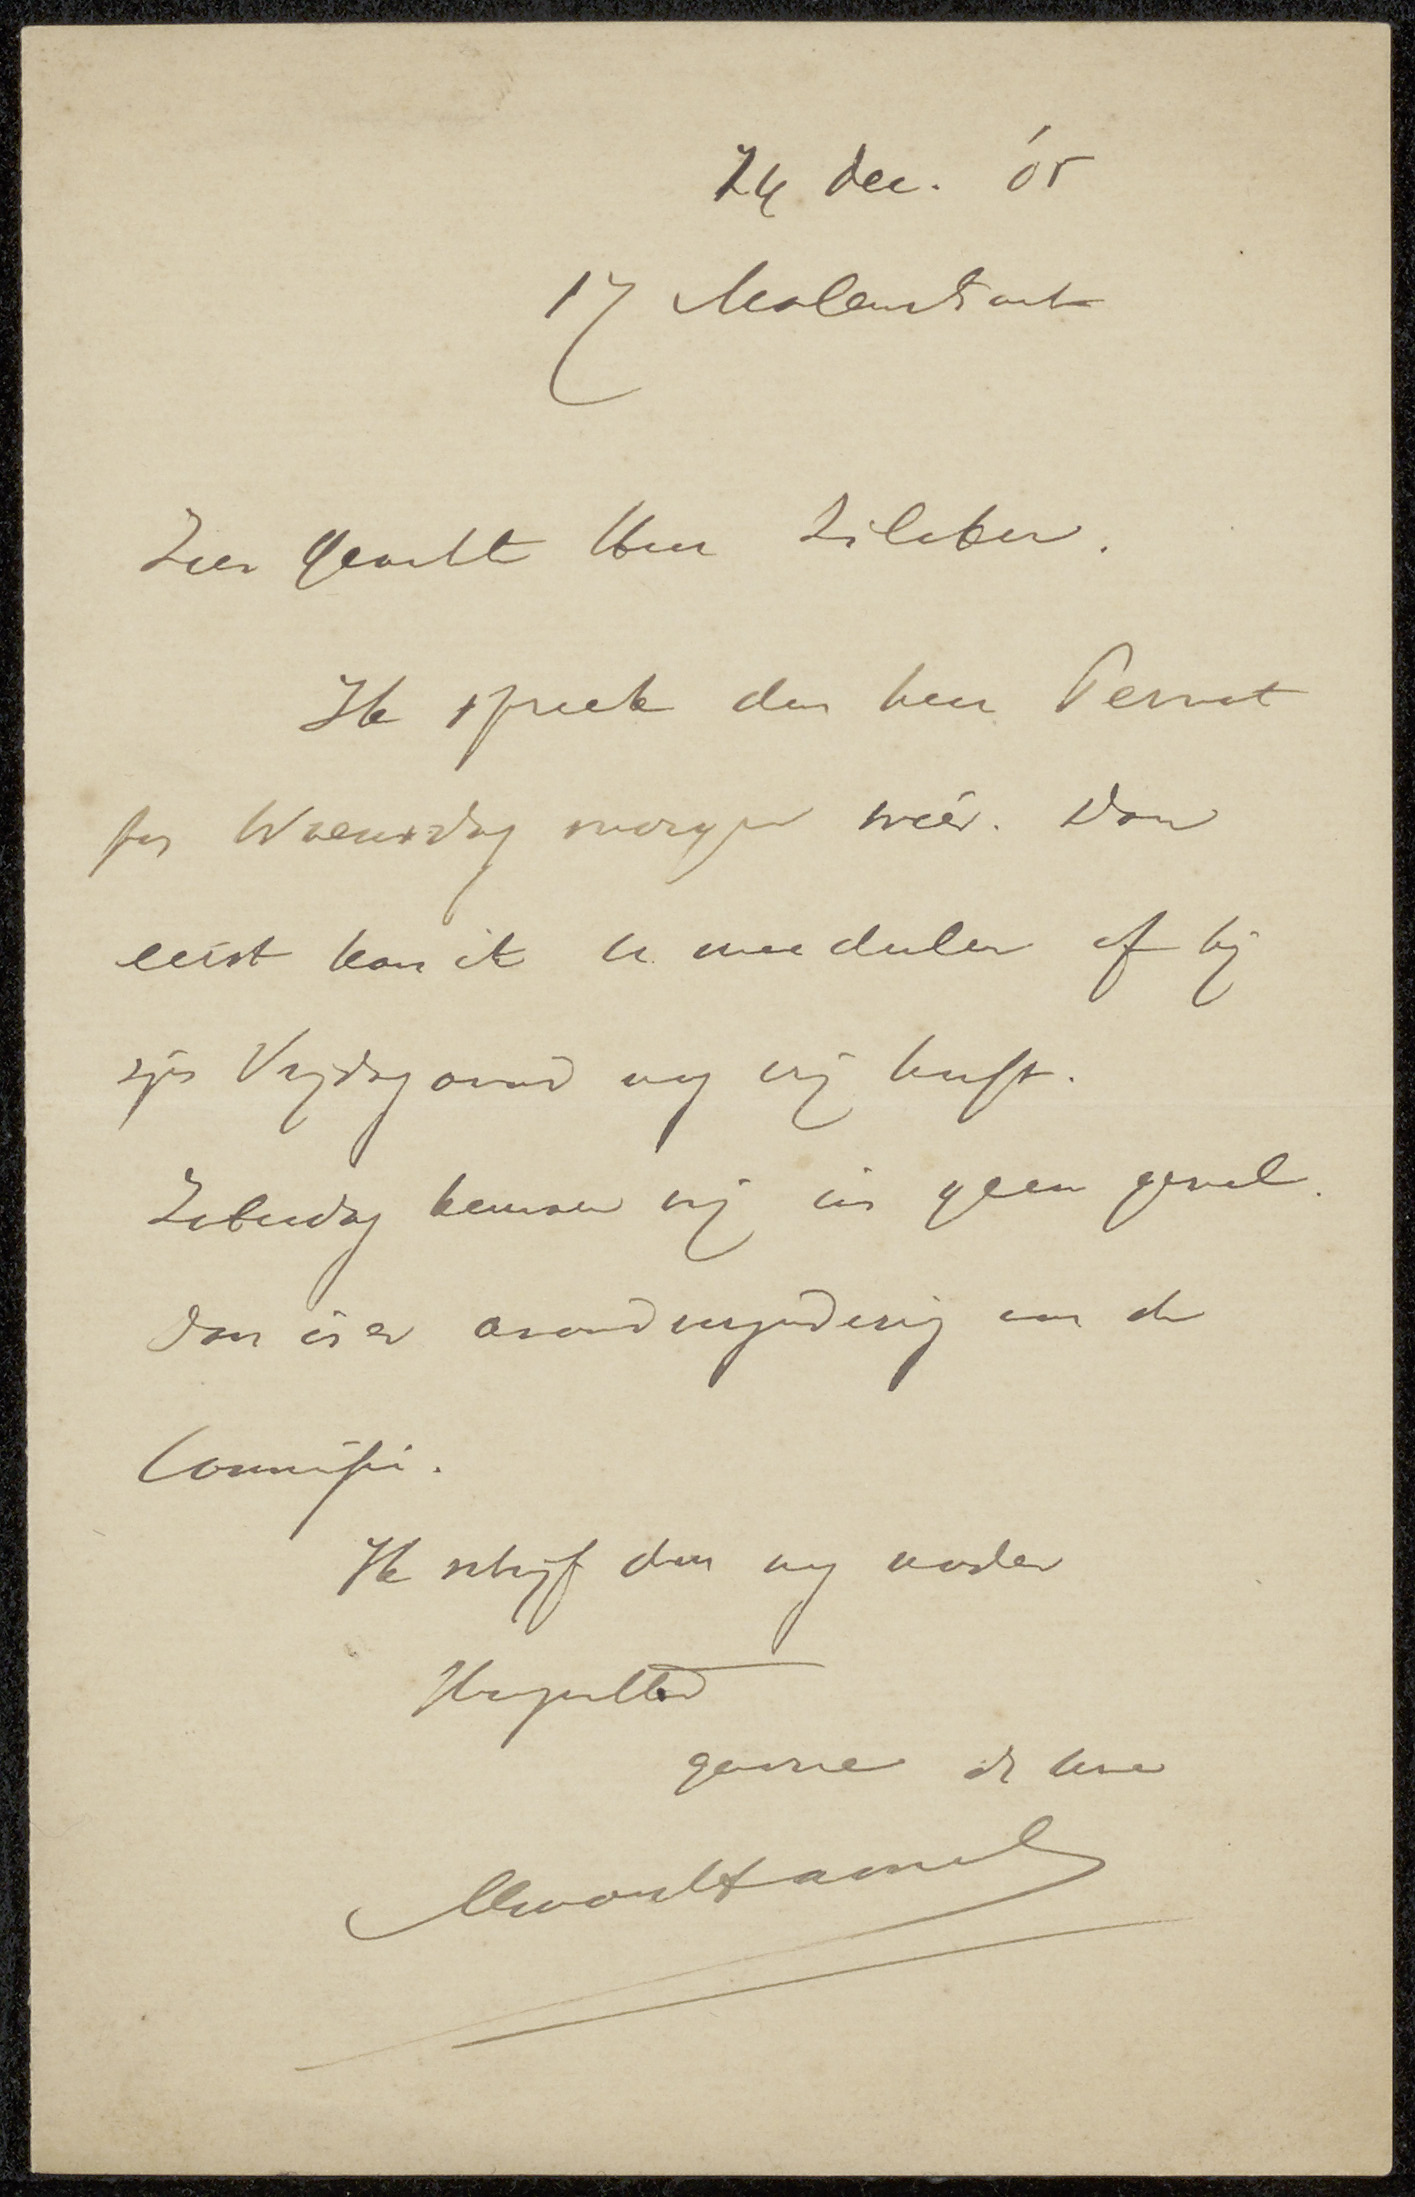 24 Dec. 05
17 Molenstraat
Zeer Geachte Heer Zilcken.
Ik spreek den heer Pernot
pas Woensdag morgen wéér. Dan
eerst kan ik U mededeelen of hij
zijn Vrijdagavond nog vrij heeft.
Zaterdag kunnen wij in geen geval.
Dan is er avondvergadering van de
Commissie.
Ik schrijf dan nog nader
Hoogachtend
gaarne de Uwe
van Hamel